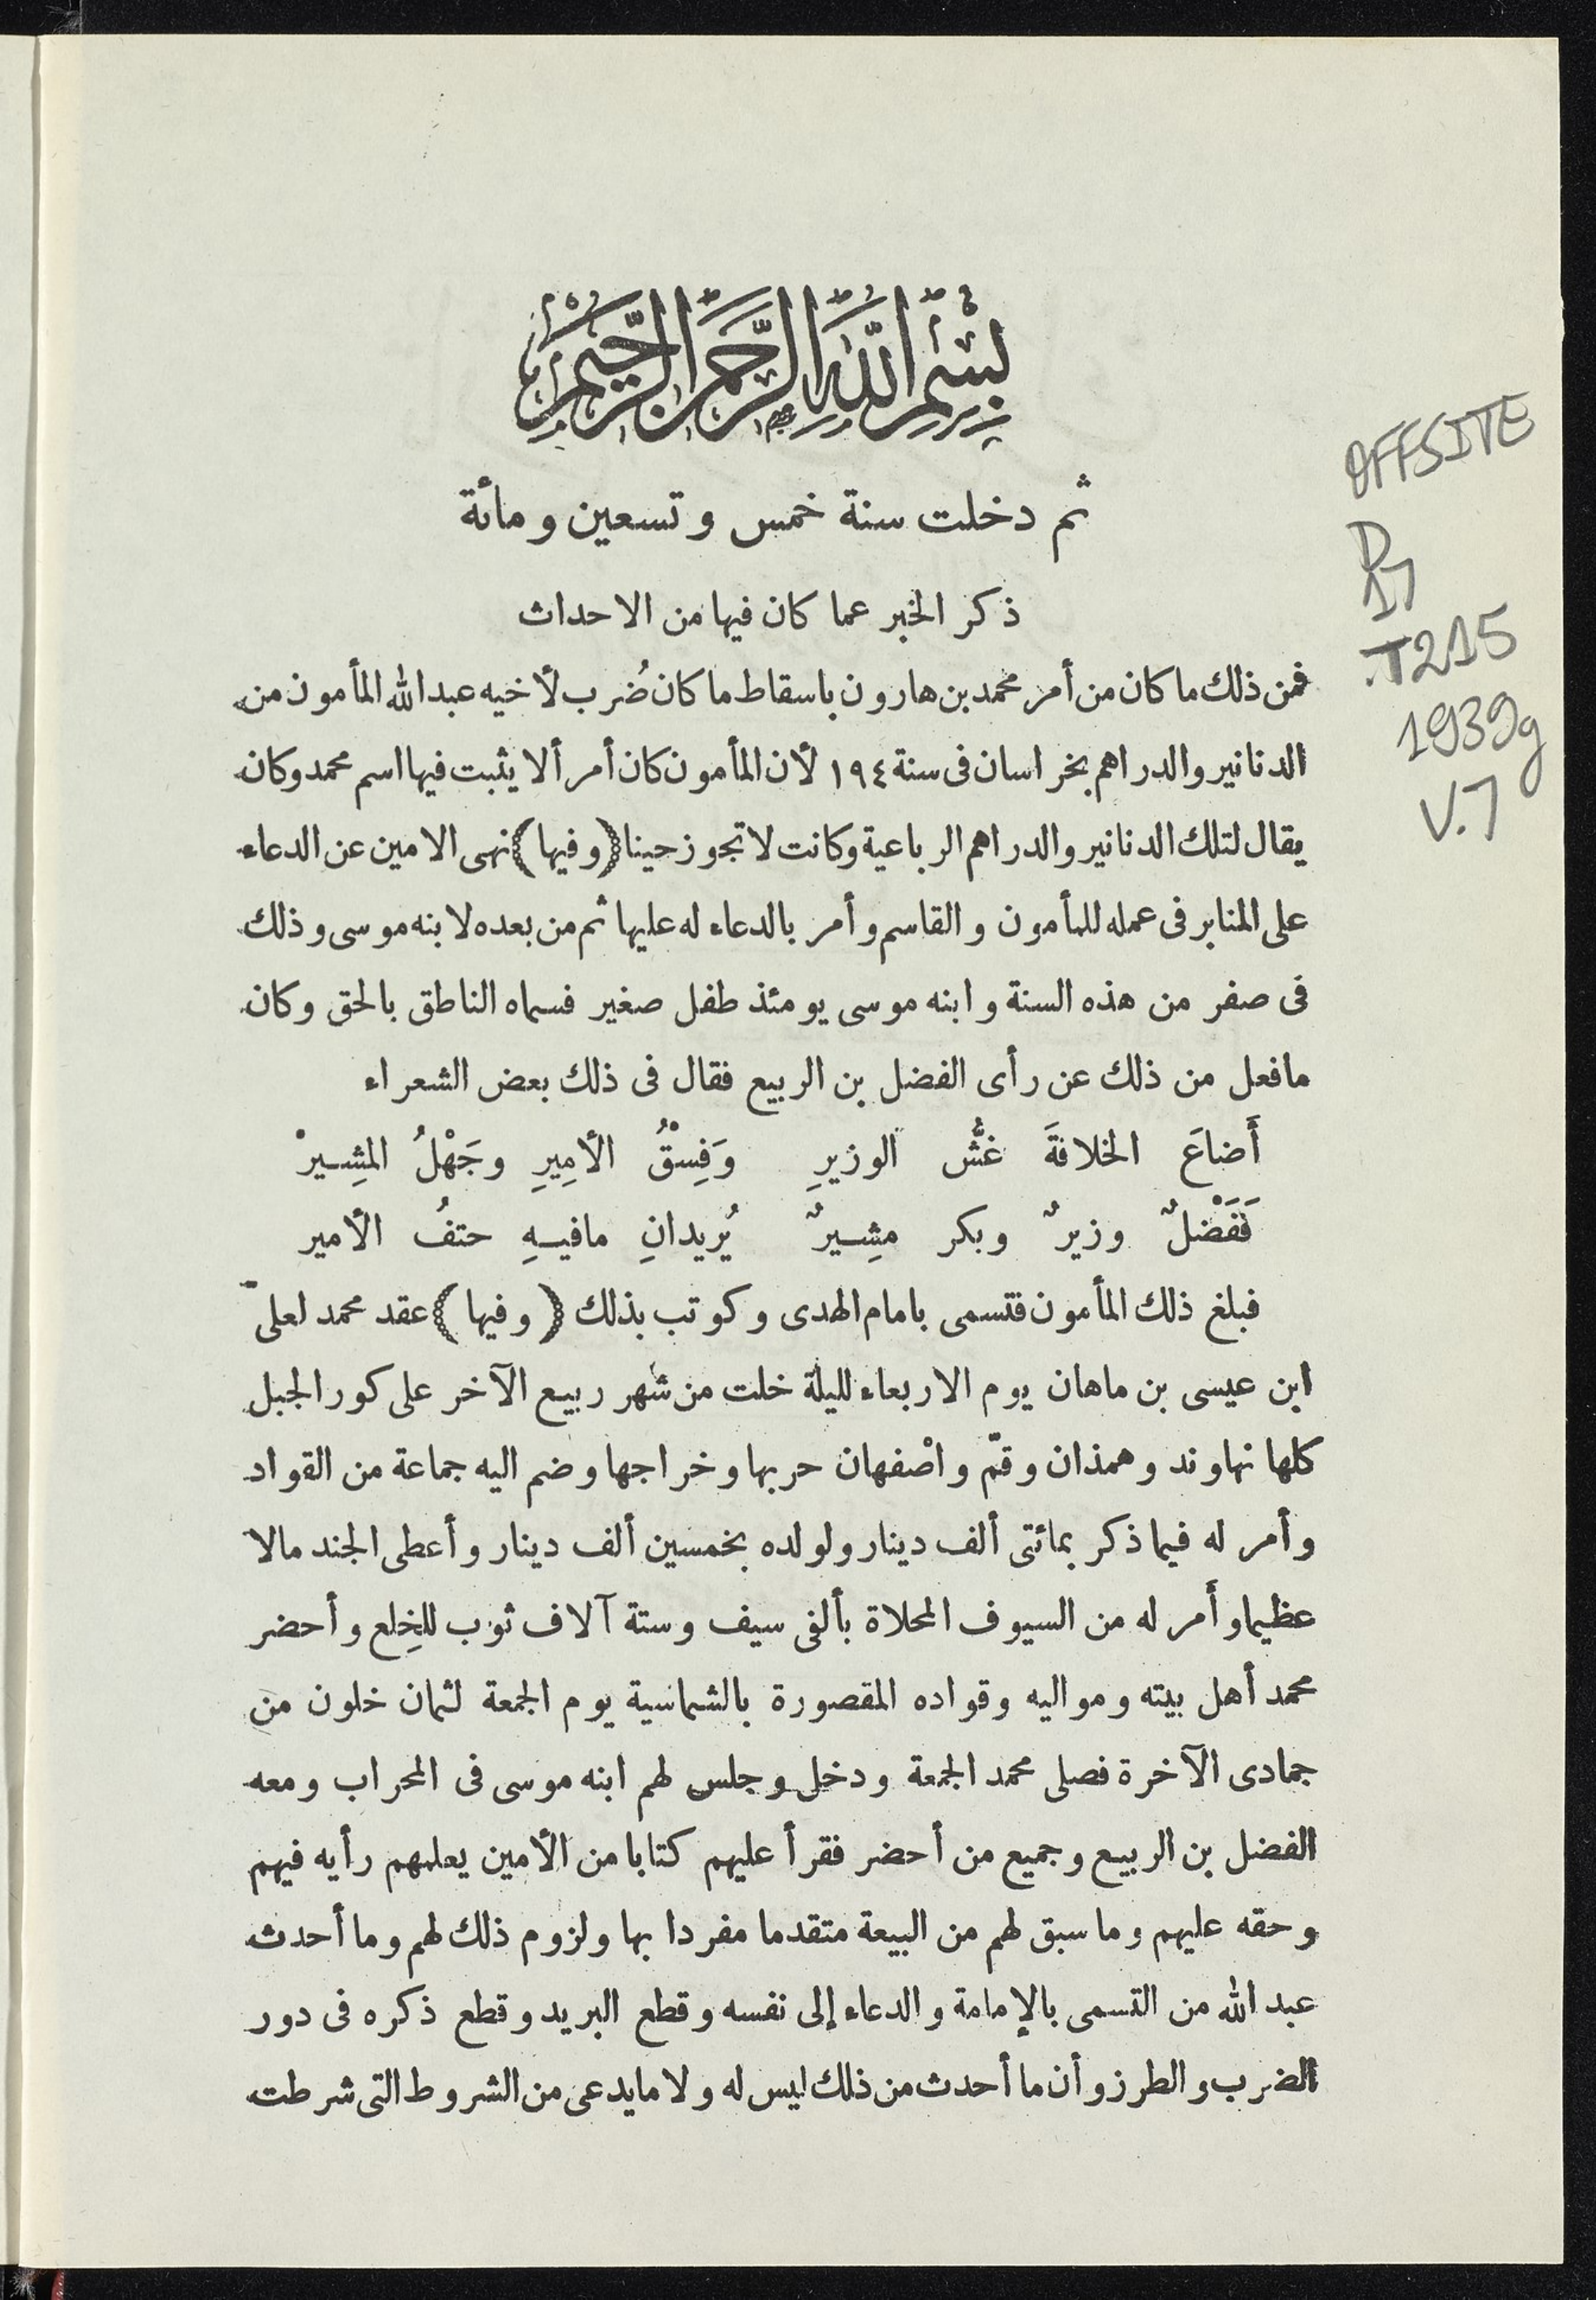 بسم الله الرحمن الرحيم
ثم دخلت سنة خمس وتسعين ومائة
ذكر الخبر عما كان فيها من الاحداث
فمن ذلك ما كان من أمر محمد بن هارون باسقاط ما كان ضُرب لأخيه عبد الله المأمون من
الدنانير والدراهم بخراسان فى سنة ١٩٤ لأن المأمون كان أمر ألا يثبت فيها اسم محمد وكان
يقال لتلك الدنانير والدراهم الرباعية وكانت لا تجوز حينا (وفيها) نهى الامين عن الدعاء
على المنابر فى عمله للمأمون والقاسم وأمر بالدعاء له عليها ثم من بعده لابنه موسى وذلك
فى صفر من هذه السنة وابنه موسى يومئذ طفل صغير فسماه الناطق بالحق وكان
مافعل من ذلك عن رأى الفضل بن الربيع فقال فى ذلك بعض الشعراء
أَضاعَ الخلافةَ غشُّ الوزيرِ وَفِسْقُ الأمِيرِ وجَهْلُ المشِيرْ
فَفَضْلٌ وزيرٌ وبكر مشِيرٌ يُريدانِ مافيهِ حتفُ الأمير
فبلغ ذلك المأمون فتسمى بامام الهدى وكوتب بذلك (وفيها) عقد محمد لعلىّ
ابن عيسى بن ماهان يوم الاربعاء لليلة خلت من شهر ربيع الآخر على كور الجبل
كلها نهاوند وهمذان وقمّ واصْفهان حربها وخراجها وضم اليه جماعة من القواد
وأمر له فيما ذكر بمائتى ألف دينار ولولده بخمسين ألف دينار وأعطى الجند مالا
عظيما وأَمر له من السيوف المحلاة بألفى سيف وستة آلاف ثوب للخِلع وأحضر
محمد أهل بيته ومواليه وقواده المقصورة بالشماسية يوم الجمعة لثمان خلون من
جمادى الآخرة فصلى محمد الجمعة ودخل وجلس لهم ابنه موسى فى المحراب ومعه
الفضل بن الربيع وجميع من أحضر فقرأ عليهم كتابا من الأمين يعلمهم رأيه فيهم
وحقه عليهم وما سبق لهم من البيعة متقدما مفردا بها ولزوم ذلك لهم وما أحدث
عبد الله من التسمى بالإمامة والدعاء إلى نفسه وقطع البريد وقطع ذكره فى دور
الضرب والطرز وأن ما أحدث من ذلك ليس له ولا مايدعى من الشروط التى شرطت
OFFSITE
D
17
.T215
1939g
V.7